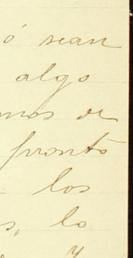 ó sean
algo
mos de
pronto
los
s, lo
y